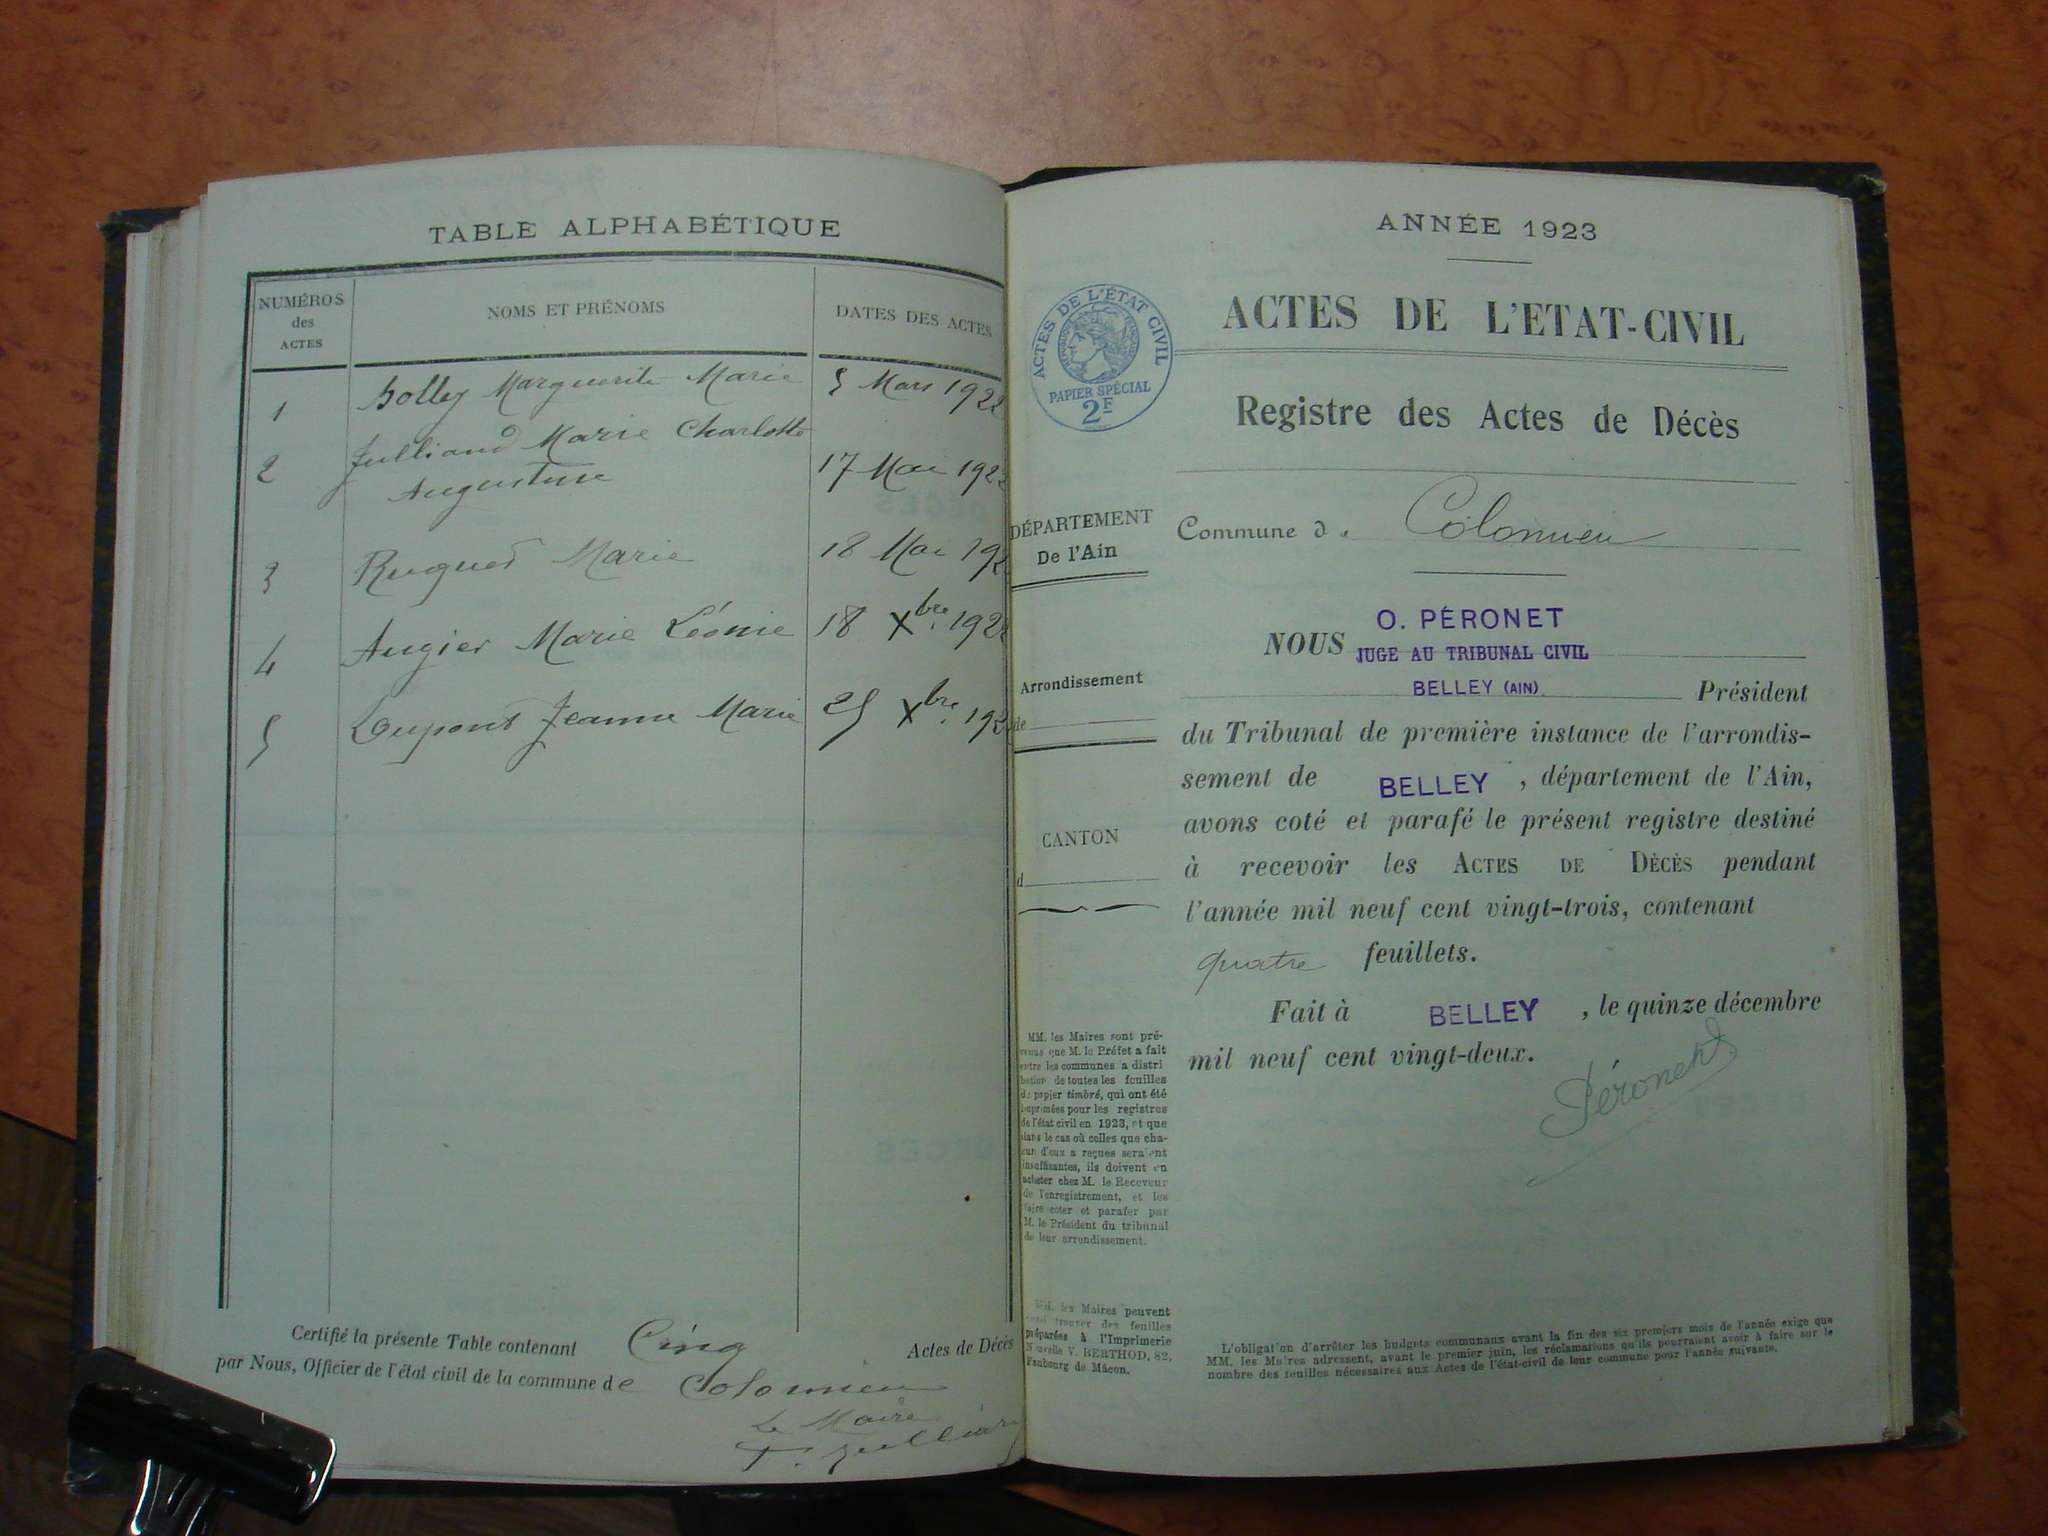 TABLE ALPHABÉTIQUE
NUMÉROS
des
ACTES
NOMS ET PRÉNOMS
DATES DES ACTES
1 Bolley Marguerite Marie 5 Mars 192
2 Julliand Marie Charlotte
Augustine 17 Mai 192
3 Marie 18 Mai 192
4 Augier Marie Léonie 18 Xbre 192
5 Dupont Jeanne Marie 25 Xbre 192
Certifié la présente Table contenant Cinq Actes de Décès
par Nous, Officier de l'état civil de la commune de Colomieu
Le Maire
ANNÉE 1923
ACTES DE L'ÉTAT CIVIL
PAPIER SPÉCIAL
2F
ACTES DE L'ETAT-CIVIL
Registre des Actes de Décès
DÉPARTEMENT
De l'Ain
Commune de Colomieu
Arrondissement
de
CANTON
d
O. PÉRONET
NOUS JUGE AU TRIBUNAL CIVIL
BELLEY (AIN) Président
du Tribunal de première instance de l'arrondis-
sement de BELLEY, département de l'Ain,
avons coté et parafé le présent registre destiné
à recevoir les ACTES DE DÉCÈS pendant
l'année mil neuf cent vingt-trois, contenant
quatre feuillets.
Fait à BELLEY, le quinze décembre
mil neuf cent vingt-deux.
Péronet
MM. les Maires sont pré-
venus que M. le Préfet a fait
entre les communes a distri
bution de toutes les feuilles
de papier timbré, qui ont été
imprimées pour les registres
de l'état civil en 1923, et que
dans le cas où celles que cha-
cun d'eux a reçues seraient
insuffisantes, ils doivent en
acheter chez M. le Receveur
de l'enregistrement, et les
faire coter et parafer par
M. le Président du tribunal
de leur arrondissement.
MM. les Maires peuvent
trouver des feuilles
préparées à l'Imprimerie
Nouvelle V. BERTHOD, 82,
Faubourg de Mâcon.
L'obligation d'arrêter les budgets communaux avant la fin des six premiers mois de l'année exige que
MM. les Maires adressent, avant le premier juin, les réclamations qu'ils pourraient avoir à faire sur le
nombre des feuilles nécessaires aux Actes de l'état-civil de leur commune pour l'année suivante.